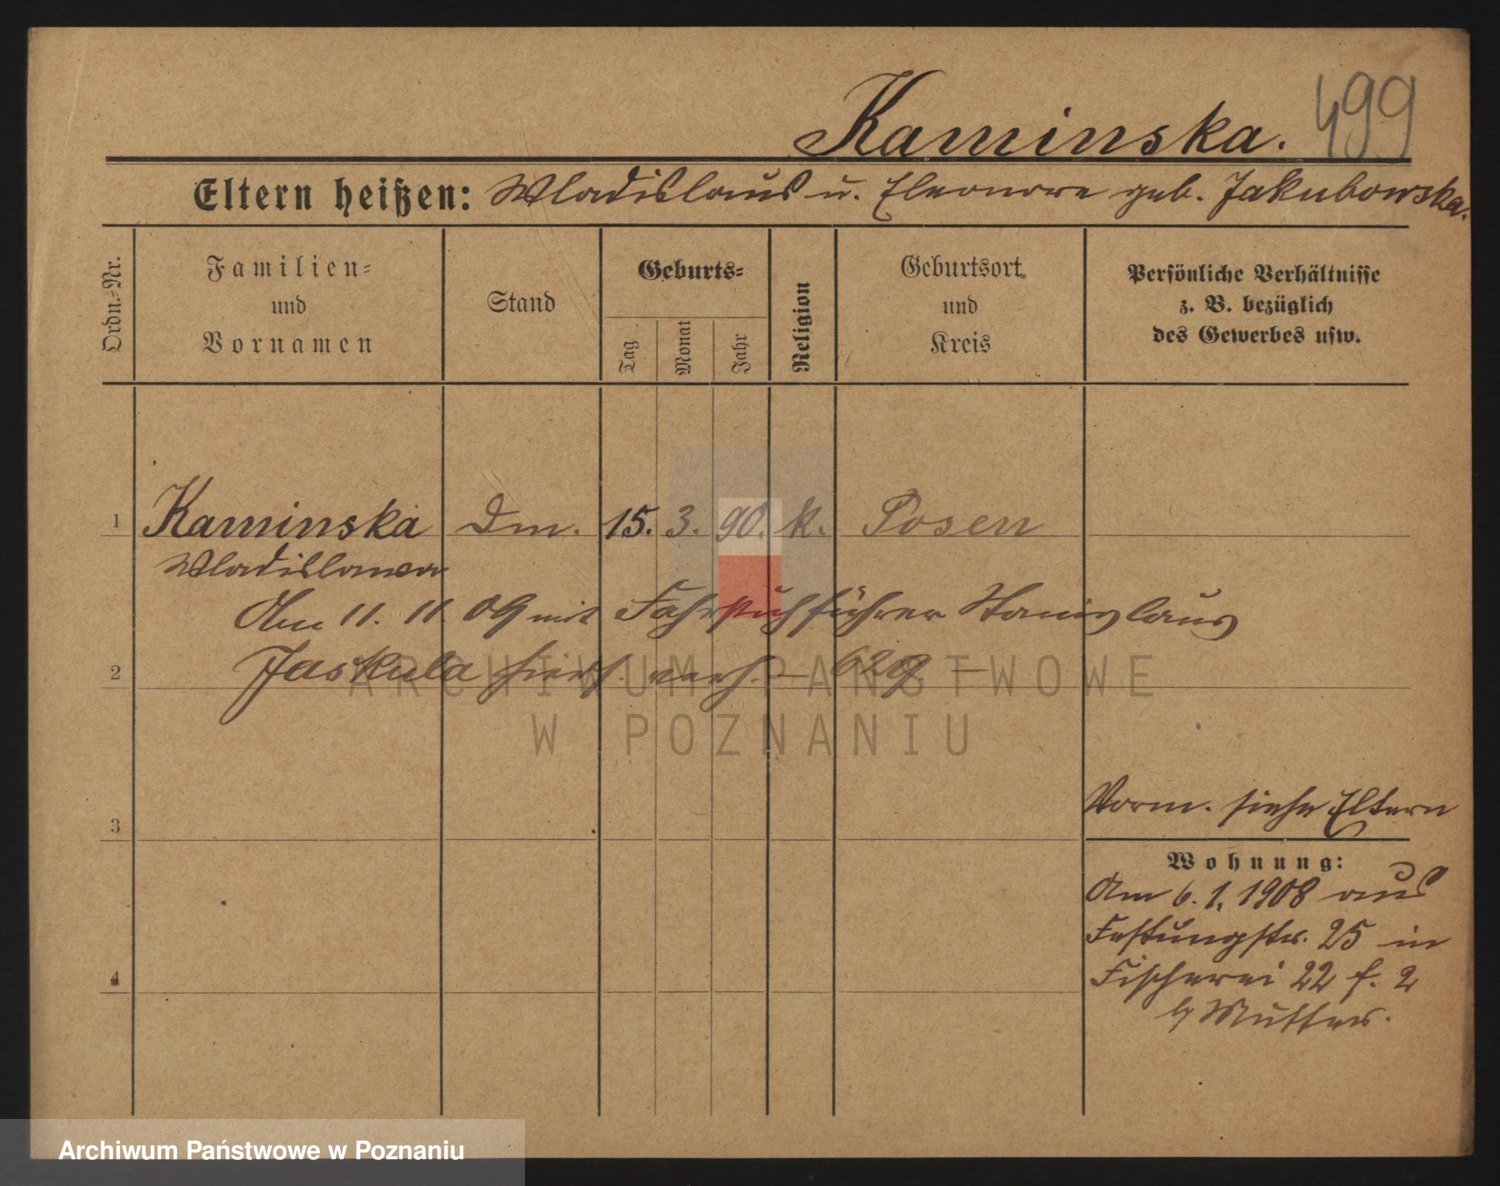 Kaminska. 499
Eltern heißen: Wladislaus u. Eleonore geb. Jakubowska.
Ordn.-Nr.
Familien-
und
Vornamen
Stand
Geburts-
Tag
Monat
Jahr
Religion
Geburtsort
und
Kreis
Persönliche Verhältnisse
z. B. bezüglich
des Gewerbes usw.
1 Kaminska Dm. 15. 3. 90. k. Posen
Wladislawa
Am 11. 11. 09 mit Fahrstuhlführer Stanislaus
2 Jaskula hier verh. — 629. —
ARCHIWUM PAŃSTWOWE
W POZNANIU
Vorm. siehe Eltern
3
Wohnung:
Am 6. 1. 1908 aus
Festungstr. 25 in
4 Fischerei 22 f. 2
b/ Mutter.
Archiwum Państwowe w Poznaniu